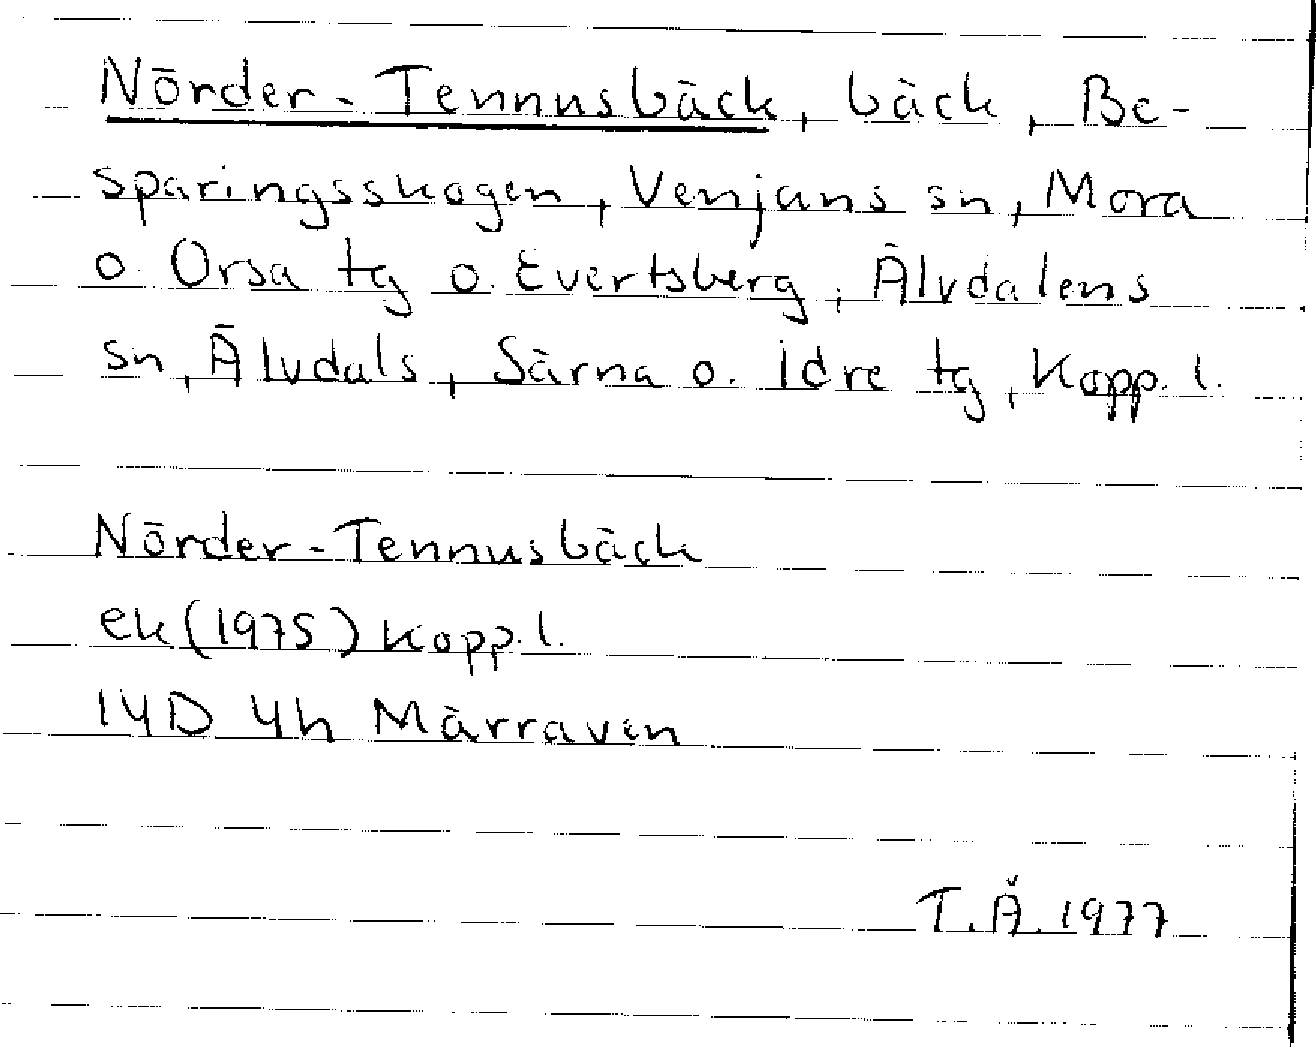 Nörder-Tennusbäck, bäck, Be-
sparingsskogen, Venjans sn, Mora
o. Orsa tg o. Evertsberg, Älvdalens
sn, Älvdals, Särna o. Idre tg, Kopp. l.
Nörder-Tennusbäck
ek (1975) Kopp. l.
14D 4h Märraven
T.Å. 1977